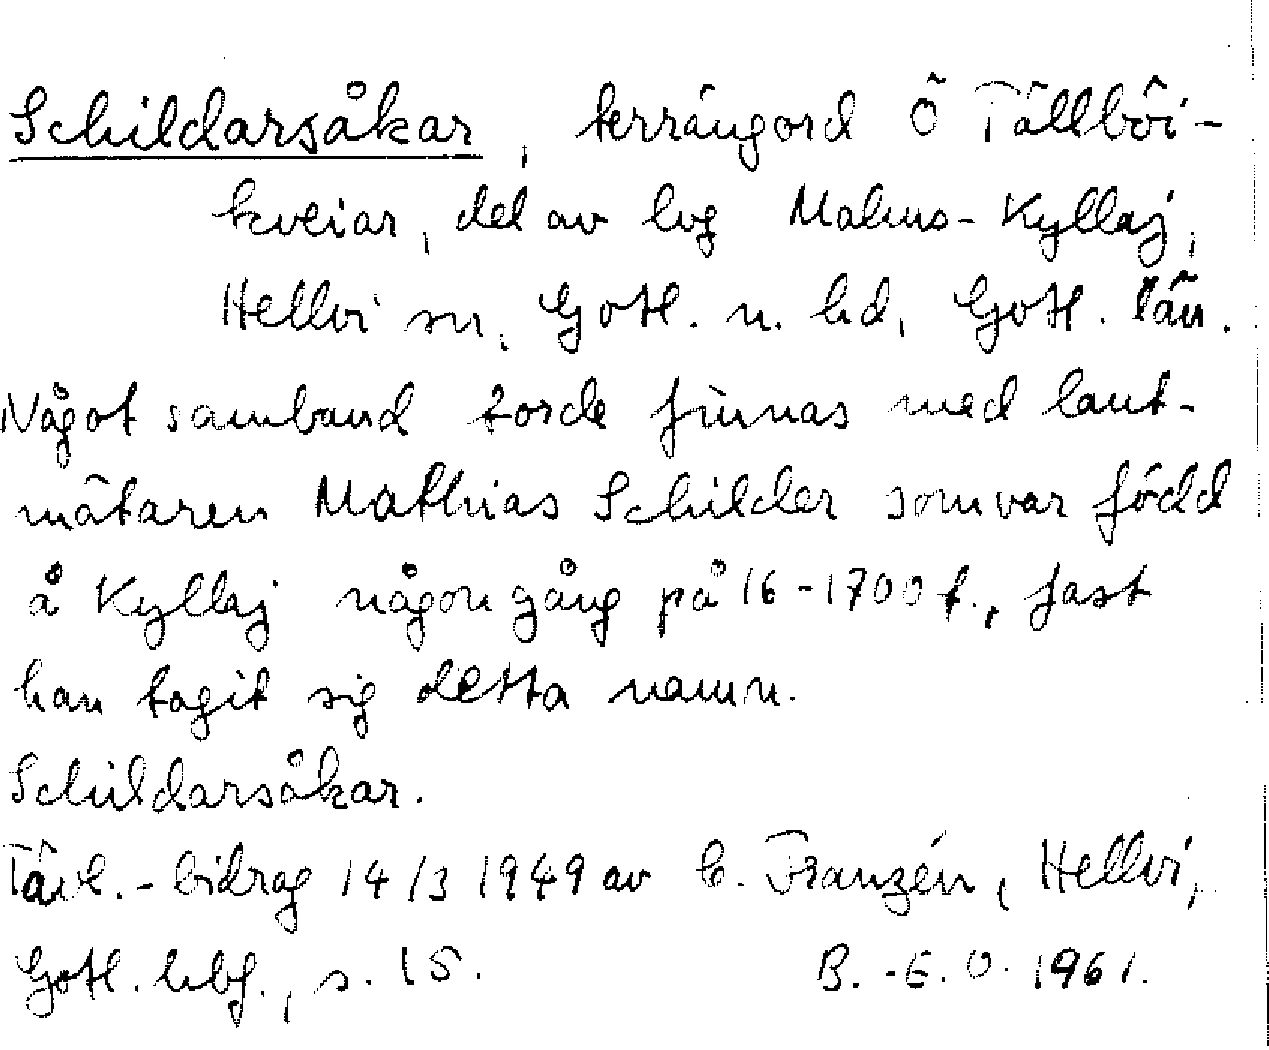 Schildarsåkar, terrängord Ö Tällböi-
kveiar, del av lvg Malms-Kyllaj,
Hellvi sn, Gotl. n. hd, Gotl. län.
Något samband torde finnas med lant-
mätaren Mathias Schilder som var född
å Kyllaj någon gång på 16-1700 t., fast
han tagit sig detta namn.
Schildarsåkar.
Tävl.-bidrag 14/3 1949 av C. Franzén, Hellvi,
Gotl. hbf., s. 15. B.-E.O. 1961.